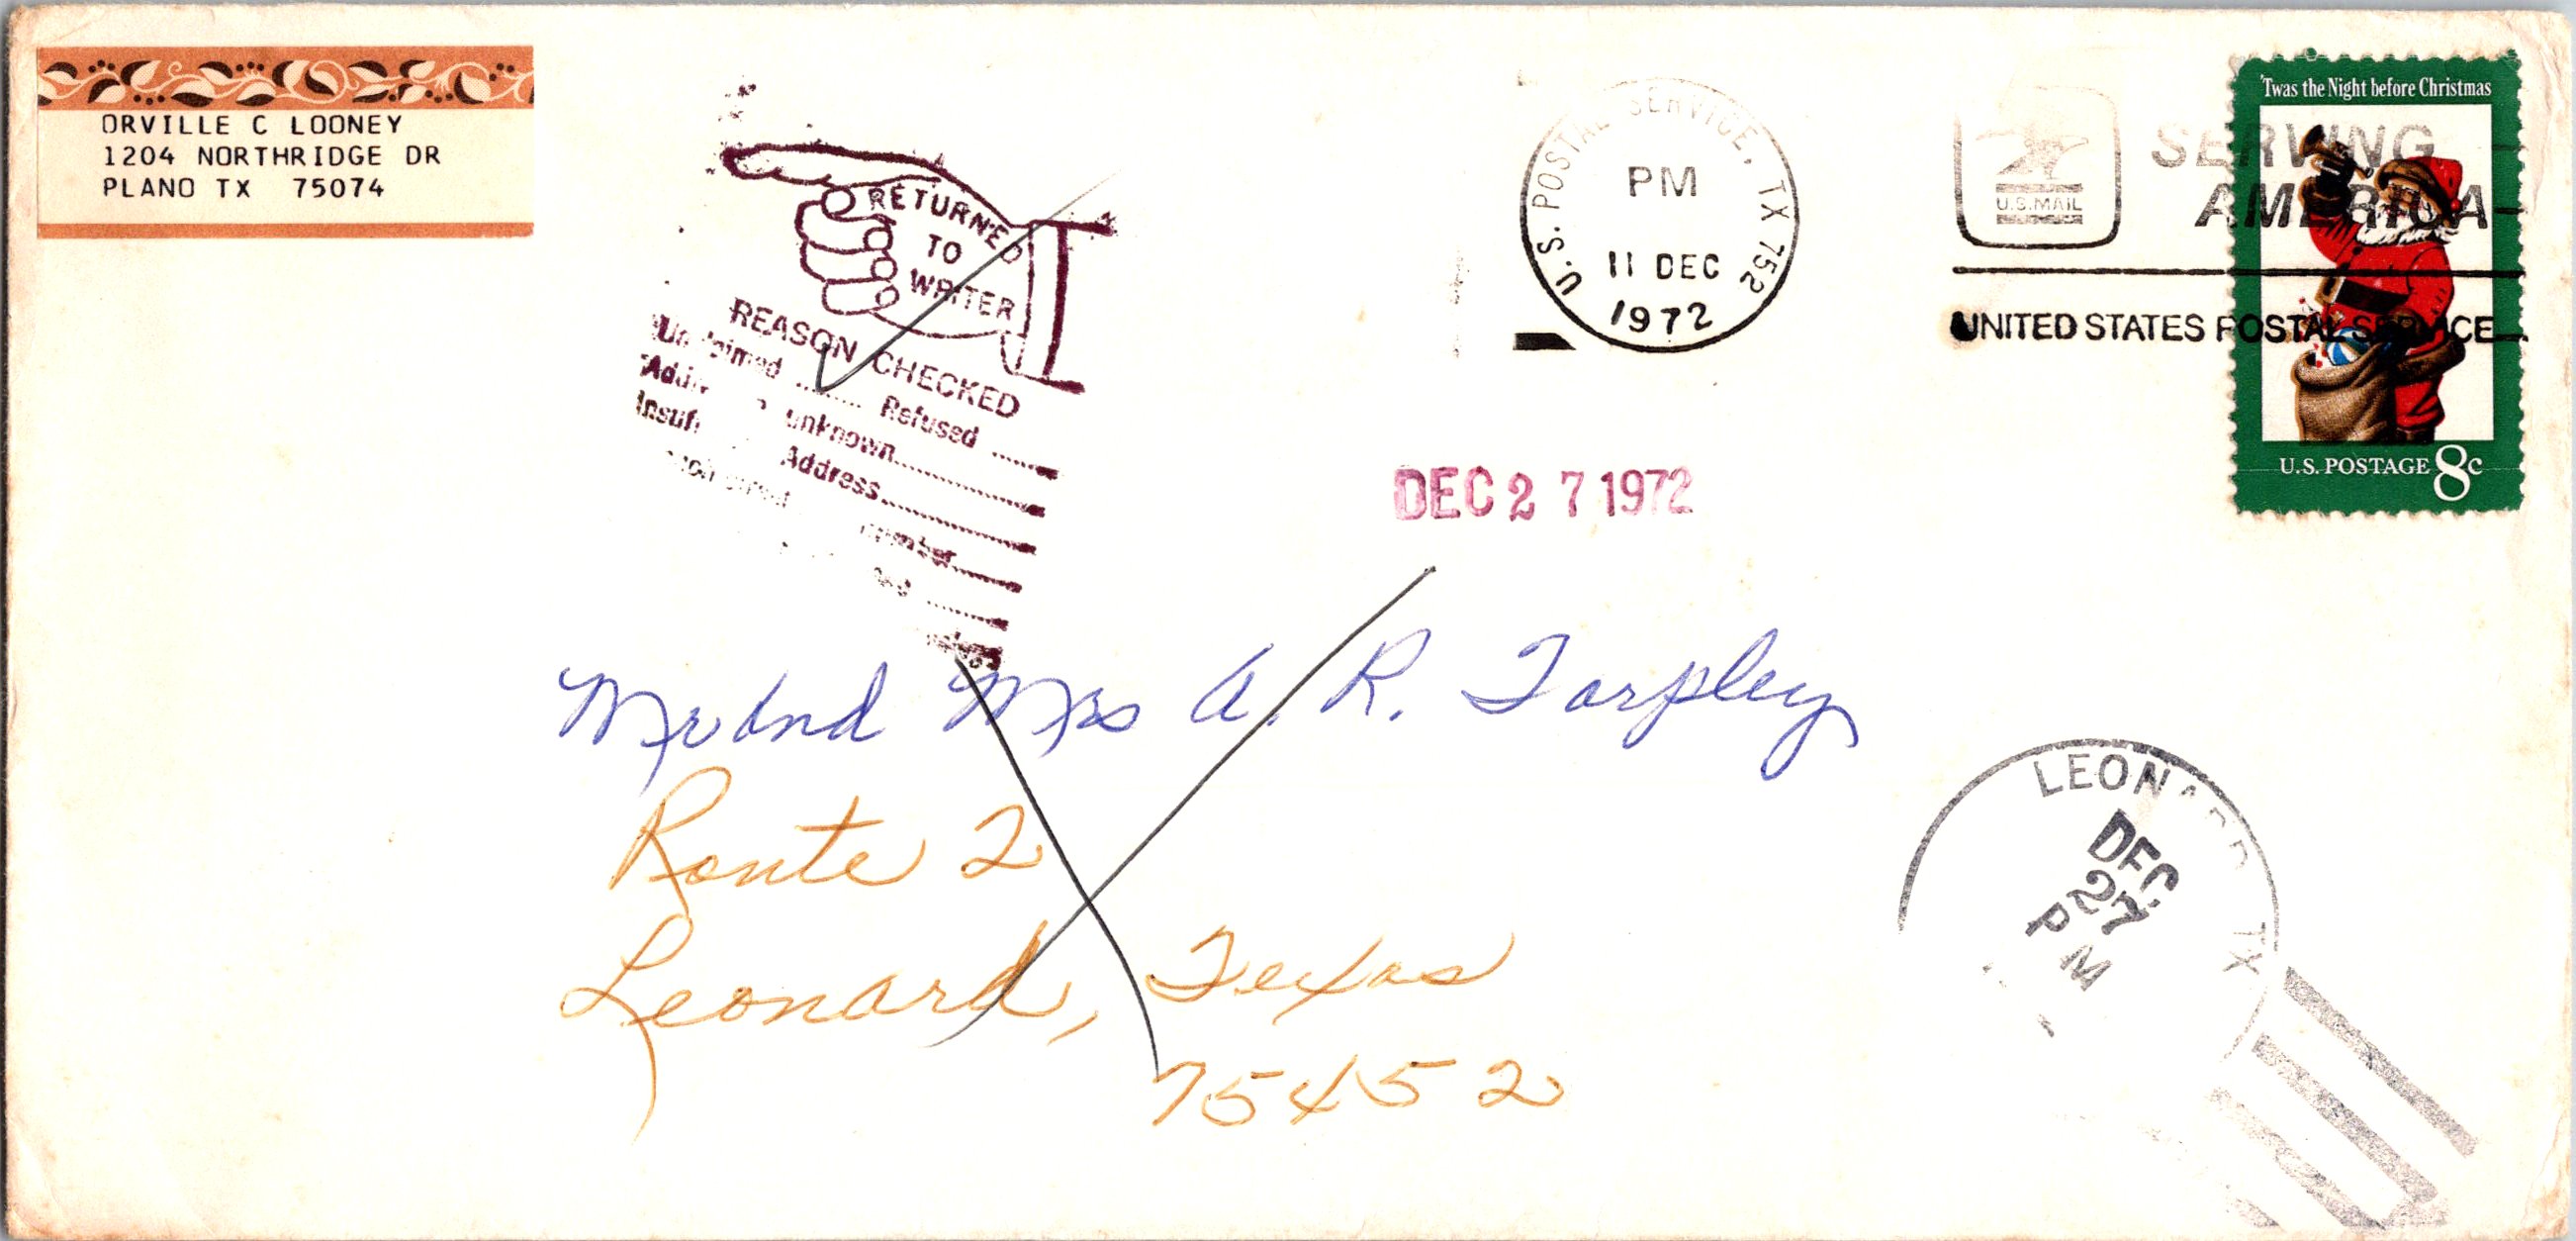 ORVILLE C LOONEY
1204 NORTHRIDGE DR
PLANO TX 75074
RETURNED
TO
WRITER
REASON CHECKED
Unclaimed ........ Refused ........
unknown
Address
number
U.S. POSTAL SERVICE, TX 752
PM
11 DEC
1972
U.S.MAIL
SERVING
AMERICA
UNITED STATES POSTAL SERVICE
'Twas the Night before Christmas
U.S. POSTAGE 8c
DEC 27 1972
Mr and Mrs A. R. Tarpley
Route 2
Leonard, Texas
75452
LEONARD TX
DEC
27
PM